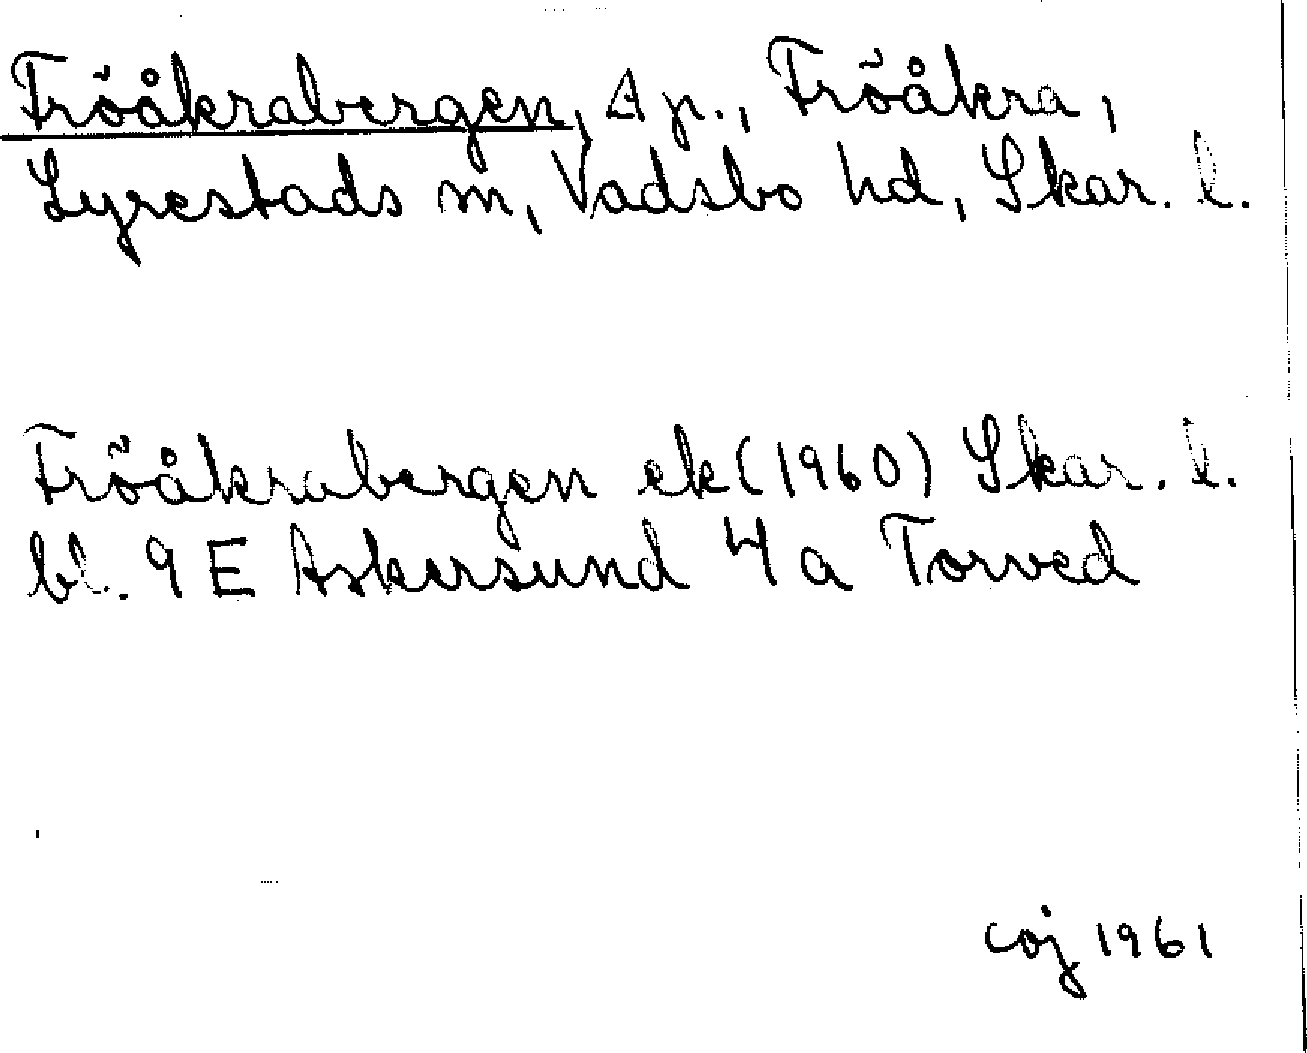 Fröåkrabergen, Ap., Fröåkra,
Lyrestads sn, Vadsbo hd, Skar. l.
Fröåkrabergen ek (1960) Skar. l.
bl. 9 E Askersund 4 a Torved
coj 1961